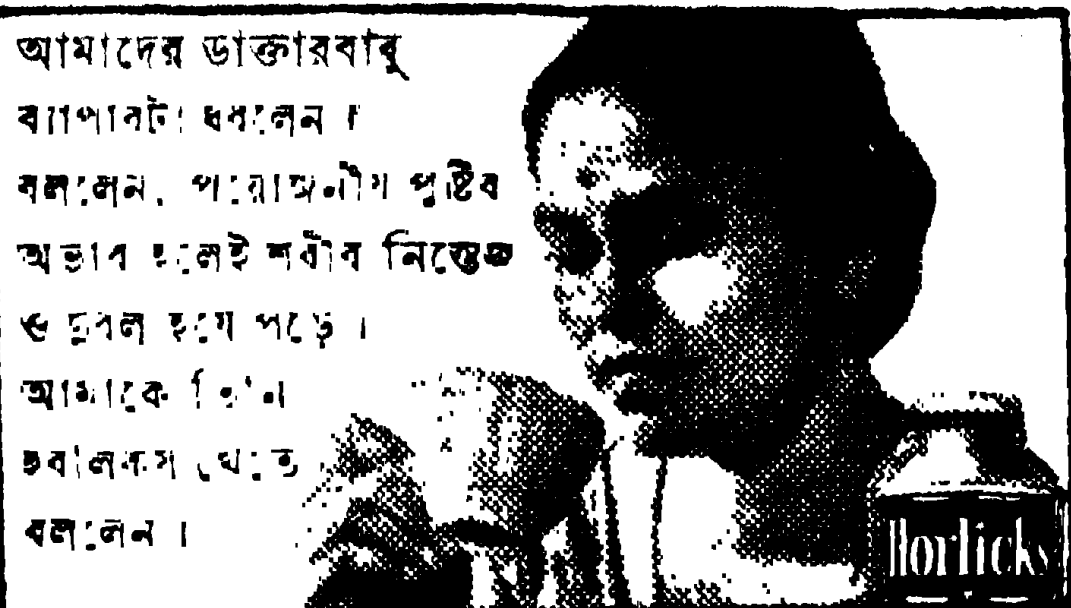 আমাদের ডাক্তারবাবু
ব্যাপারটা ধরলেন।
বললেন, প্রয়োজনীয় পুষ্টির
অভাব হলেই শরীর নিস্তেজ
ও দুর্বল হয়ে পড়ে।
আমাকে তিনি
হরলিকস খেতে
বললেন।
Horlicks